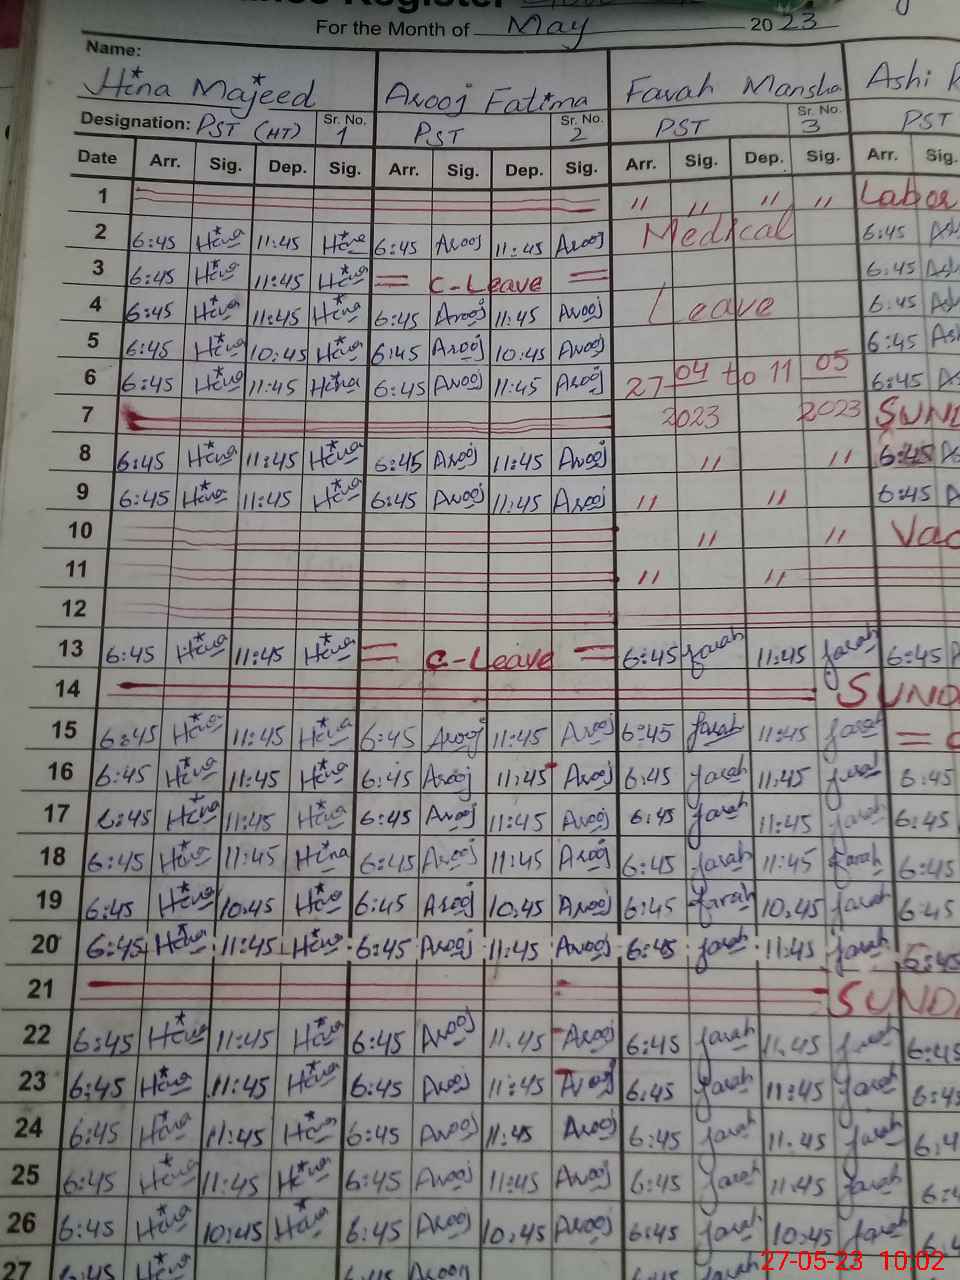 Register
For the Month of May 2023
Name:
Hina Majeed Arooj Fatima Farah Mansha Ashi
Designation: PST (HT) Sr. No. 1 PST Sr. No. 2 PST Sr. No. 3 PST
Date Arr. Sig. Dep. Sig. Arr. Sig. Dep. Sig. Arr. Sig. Dep. Sig. Arr. Sig.
1 " " " " Labor
2 6:45 Hina 11:45 Hina 6:45 Arooj 11:45 Arooj Medical 6:45
3 6:45 Hina 11:45 Hina = C-Leave = 6:45
4 6:45 Hina 11:45 Hina 6:45 Arooj 11:45 Arooj Leave 6:45
5 6:45 Hina 10:45 Hina 6:45 Arooj 10:45 Arooj 6:45
6 6:45 Hina 11:45 Hina 6:45 Arooj 11:45 Arooj 27-04 to 11 05 6:45
7 2023 2023 SUND
8 6:45 Hina 11:45 Hina 6:45 Arooj 11:45 Arooj " " 6:45
9 6:45 Hina 11:45 Hina 6:45 Arooj 11:45 Arooj " " 6:45
10 " " Vac
11 " "
12
13 6:45 Hina 11:45 Hina = C-Leave = 6:45 farah 11:45 farah 6:45
14 SUND
15 6:45 Hina 11:45 Hina 6:45 Arooj 11:45 Arooj 6:45 farah 11:45 farah =
16 6:45 Hina 11:45 Hina 6:45 Arooj 11:45 Arooj 6:45 farah 11:45 farah 6:45
17 6:45 Hina 11:45 Hina 6:45 Arooj 11:45 Arooj 6:45 farah 11:45 farah 6:45
18 6:45 Hina 11:45 Hina 6:45 Arooj 11:45 Arooj 6:45 farah 11:45 farah 6:45
19 6:45 Hina 10:45 Hina 6:45 Arooj 10:45 Arooj 6:45 farah 10:45 farah 6:45
20 6:45 Hina 11:45 Hina 6:45 Arooj 11:45 Arooj 6:45 farah 11:45 farah 6:45
21 SUND
22 6:45 Hina 11:45 Hina 6:45 Arooj 11.45 Arooj 6:45 farah 11.45 farah 6:45
23 6:45 Hina 11:45 Hina 6:45 Arooj 11:45 Arooj 6:45 farah 11:45 farah 6:45
24 6:45 Hina 11:45 Hina 6:45 Arooj 11:45 Arooj 6:45 farah 11.45 farah 6:4
25 6:45 Hina 11:45 Hina 6:45 Arooj 11:45 Arooj 6:45 farah 11:45 farah 6:4
26 6:45 Hina 10:45 Hina 6:45 Arooj 10:45 Arooj 6:45 farah 10:45 farah 6:4
27 6:45 Hina 6:45 Arooj 6:45 farah
27-05-23 10:02